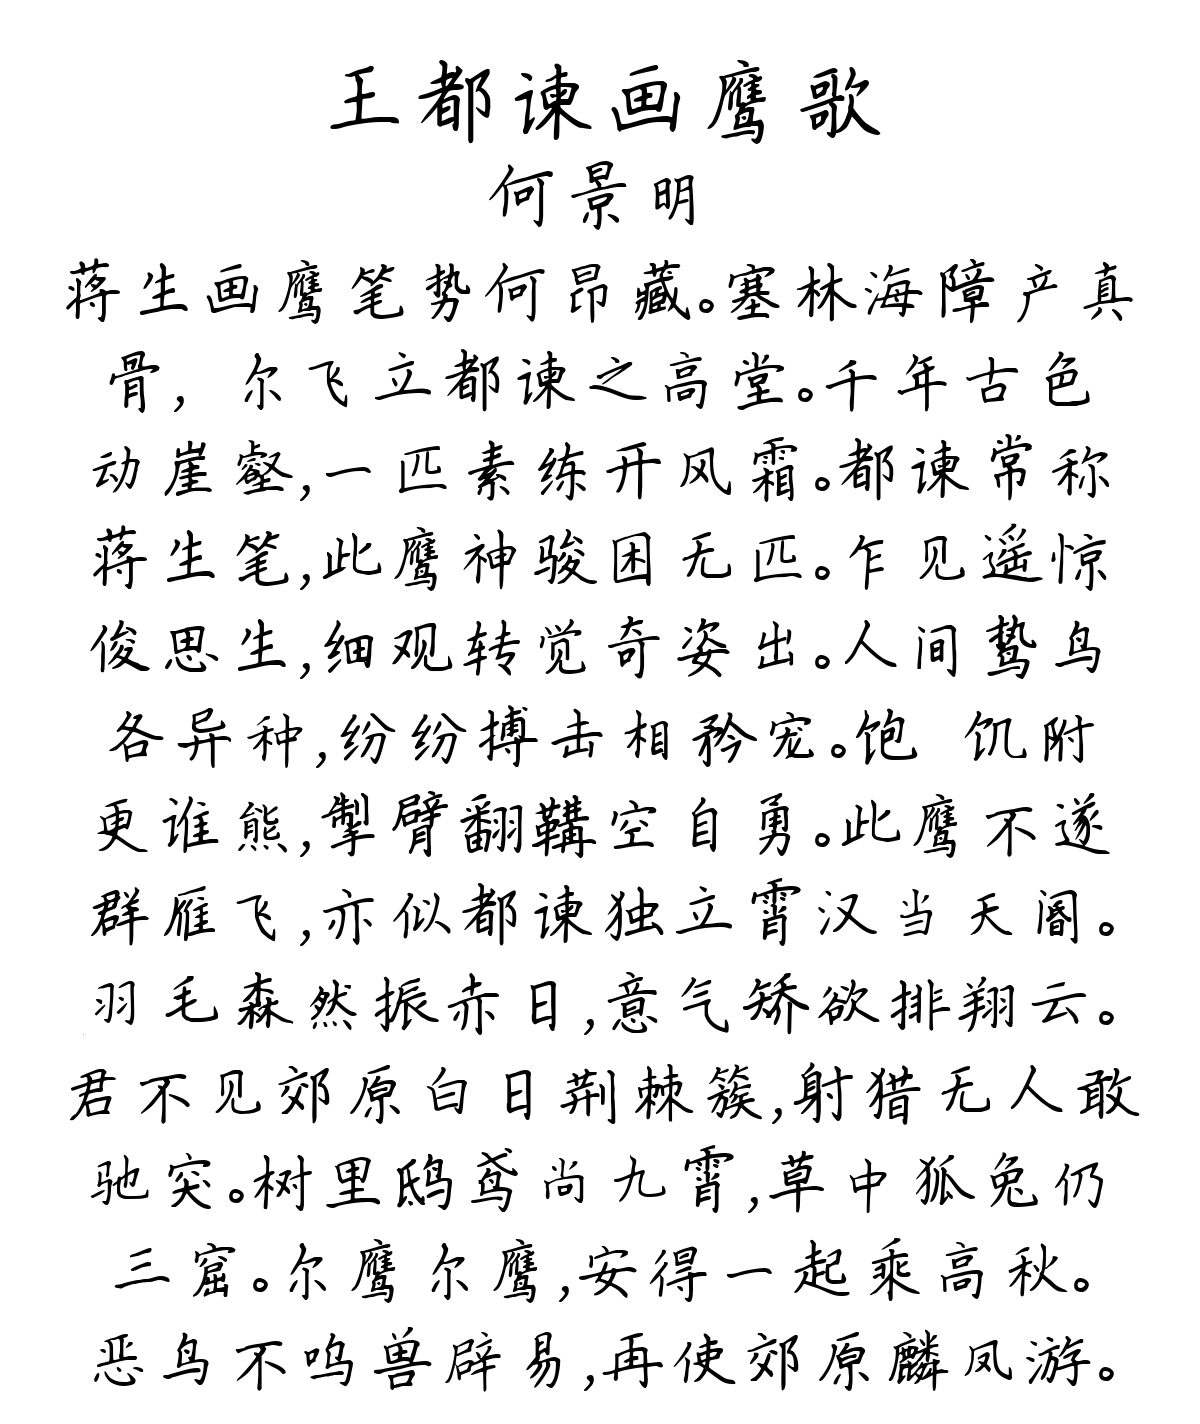 王都谏画鹰歌
何景明
蒋生画鹰笔势何昂藏。塞林海障产真
骨，尔飞立都谏之高堂。千年古色
动崖壑,一匹素练开风霜。都谏常称
蒋生笔,此鹰神骏困无匹。乍见遥惊
俊思生,细观转觉奇姿出。人间鸷鸟
各异种,纷纷搏击相矜宠。饱 饥附
更谁熊,掣臂翻鞲空自勇。此鹰不遂
群雁飞,亦似都谏独立霄汉当天阍。
羽毛森然振赤日,意气矫欲排翔云。
君不见郊原白日荆棘簇,射猎无人敢
驰突。树里鸱鸢尚九霄,草中狐兔仍
三窟。尔鹰尔鹰,安得一起乘高秋。
恶鸟不呜兽辟易,再使郊原麟凤游。